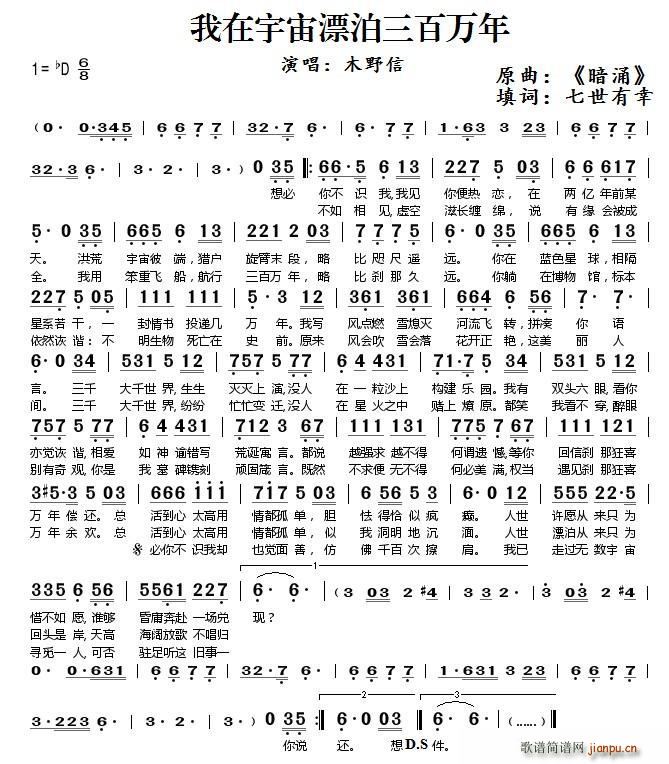 我在宇宙漂泊三百万年
1=♭D 6/8
演唱：木野信
原曲：《暗涌》
填词：七世有幸
(0· 0·345 | 6 6 7 7 | 32·7 6· | 6· 7· | 1·63 3 23 | 6 6 7 7
32·3 6· | 3·2· | 3·2·) | 0 35 ‖: 66·5 6 13 | 227 5 03 | 6 6 617
想必 你不 识我,我见 你便热 恋，在 两 亿 年前某
不如 相见,虚空 滋长缠 绵，说 有 缘 会被成
5·0 35 | 665 6 13 | 221 2 03 | 7 775 | 5·0 35 | 665 6 13
天。 洪荒 宇宙彼 端,猎户 旋臂末 段，略 比 咫尺 遥 远。 你在 蓝色星 球，相隔
全。 我用 笨重飞 船,航行 三百万 年，略 比 刹那 久 远。 你躺 在博物 馆，标本
227 5 05 | 111 111 | 3·3 12 | 361 361 | 664 6 56 | 5 03 12
星系若 干，一 封情书 投递几 万 年。我写 风点燃 雪熄灭 河流飞 转，拼凑 你 语
依然诙 谐：不 明生物 死亡在 史 前。原来 风会吹 雪会落 花开正 艳，这美 丽 人
6·0 34 | 531 5 12 | 757 5 77 | 6 4 431 | 7·712 3 34 | 531 5 12
言。 三千 大千世 界,生生 灭灭上 演,没人 在 一 粒沙上 构建 乐 园。我有 双头六 眼,看你
间。 三千 大千世 界,纷纷 忙忙变 迁,没人 在 星 火之中 赌上 燎 原。都笑 我看不 穿,醉眼
757 5 77 | 6 4 431 | 712 3 67 | 111 111 | 717 5 35 | 666 777
亦觉诙 谐,相爱 如 神 谕借写 荒诞寓 言。都说 越强求 越不得 何谓遗 憾,等你 回信刹 那狂喜
别有奇 观,你是 我 墓 碑镌刻 顽固箴 言。既然 不求便 无不得 何必美 满,权当 遇见刹 那狂喜
3♯5·3 5 03 | 666 111 | 717 5 03 | 6 56 5 | 6·0 12 | 555 22·5
万 年 偿 还。总 活到心 太高用 情都孤 单，胆 怯 得恰 似疯 癫。 人世 许愿从 来只 为
万 年 余 欢。总 活到心 太高用 情都孤 单，似 我 洞明 地沉 湎。 人世 漂泊从 来只 为
𝄋 必你不 识我却 也觉面 善，仿 佛 千百 次擦 肩。 我已 走过无 数宇 宙
335 6 56 | 5561 227 | 6·6· | (3 03 2♯4 | 3 03 2♯4 | 3 03 2♯4
惜不如 愿,谁够 昏庸奔赴 一场兑 现？
回头是 岸,天高 海阔放歌 不唱归
寻觅一 人,可否 驻足听这 旧事一
0·0·631 | 6 6 7 7 | 32·7 6· | 6· 7· | 0·0·631 | 1 3 23 | 6 6 7 7
3·2223 6· | 3·2· | 3·2·) | 0 35 :‖ 6·0 03 :‖ 6·6· | (……) ‖
你说 还。 想D.S 件。
歌谱简谱网
jianpu.cn